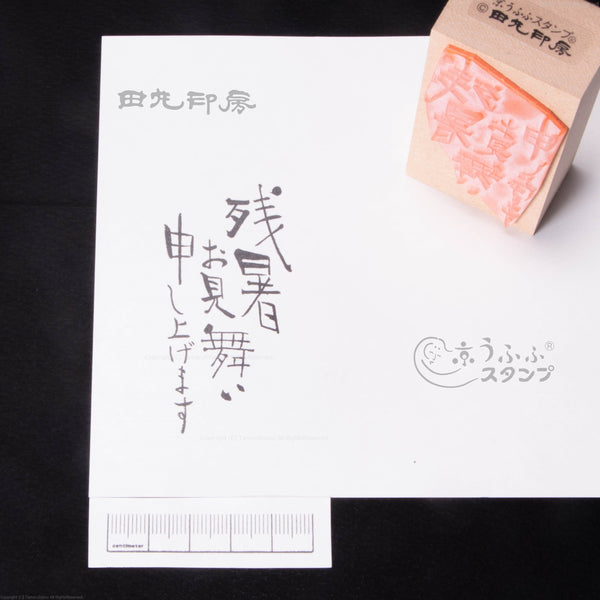 京うふふスタンプ®
© 田丸印房
田丸印房
残暑
お見舞い
申し上げます
京うふふ®
スタンプ
centimeter